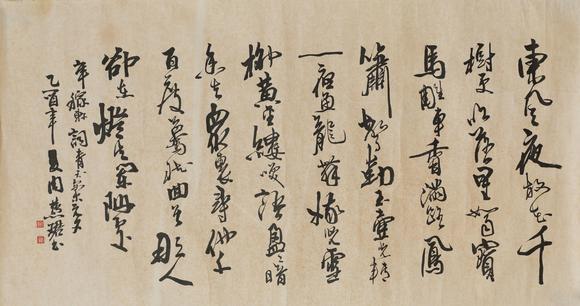 東風夜放花千
樹更吹落星如雨寶
馬雕車香滿路鳳
簫聲動玉壺光轉
一夜魚龍舞蛾兒雪
柳黃金縷笑語盈〻暗
香去眾裏尋他千
百度驀然回首那人
卻在燈火闌珊處
辛稼軒詞青玉案元夕
乙酉年夏周慧珺書